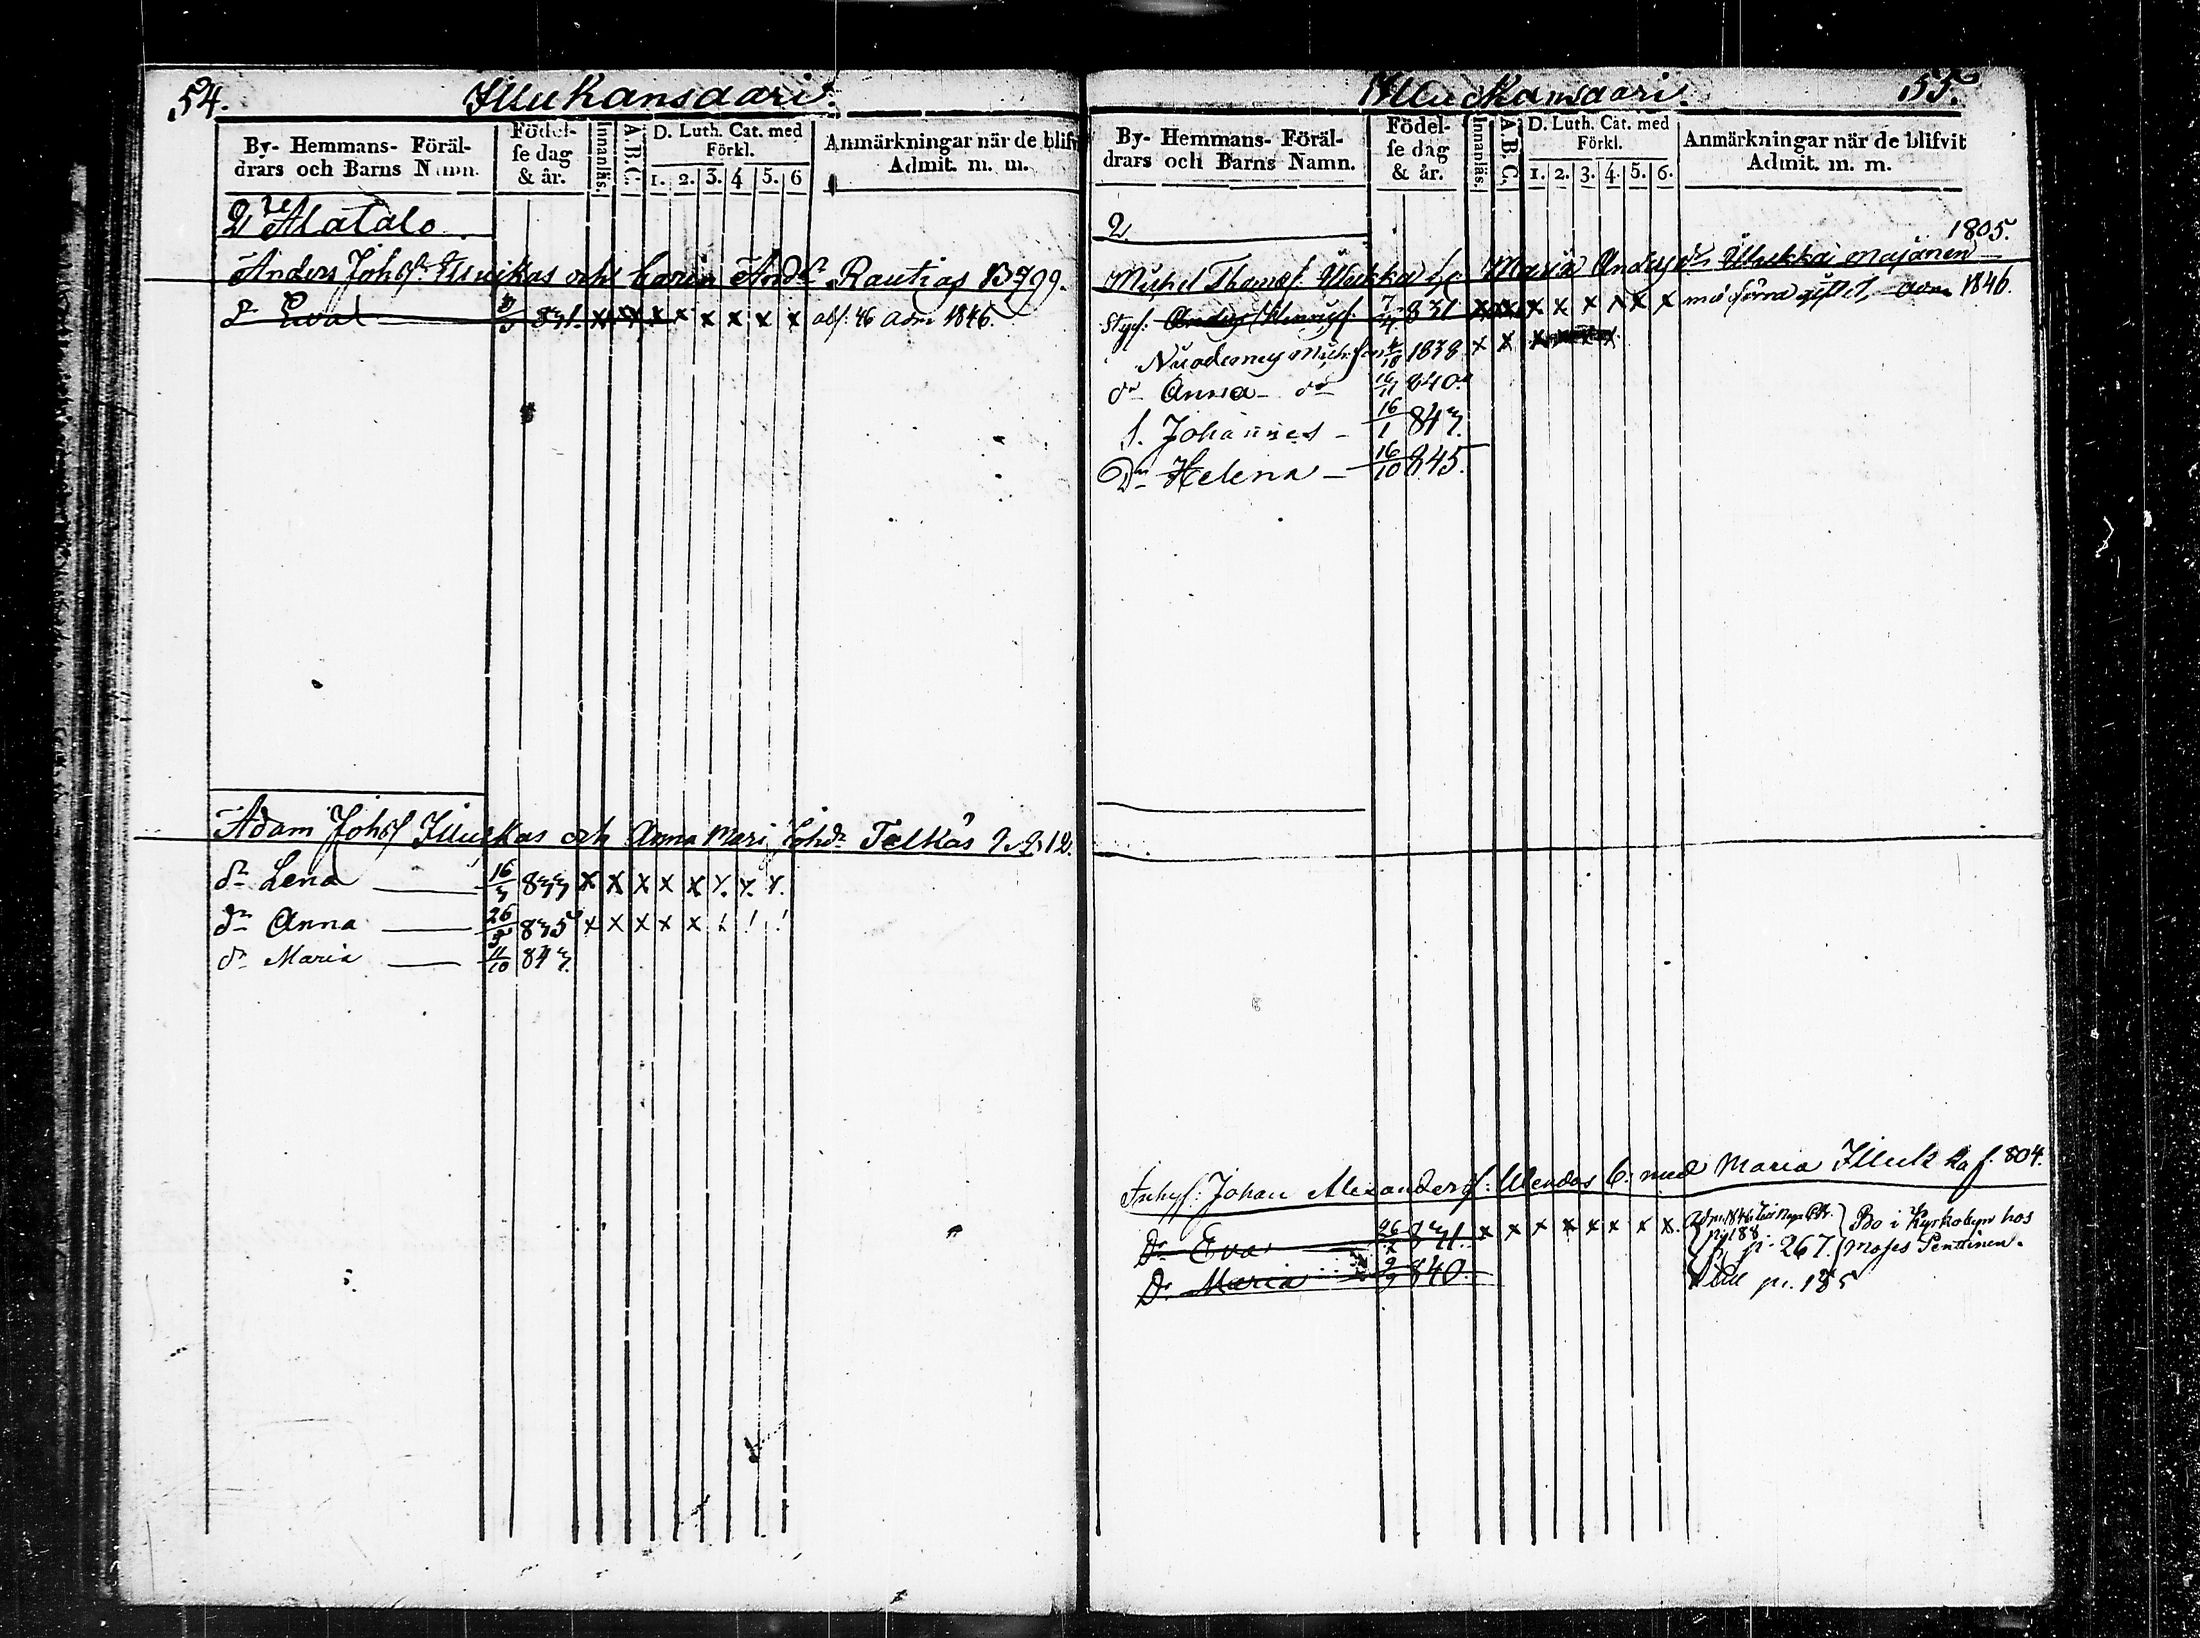 54.
Illukansaari.
By- Hemmans- Föräl-
drars och Barns Namn.
Födel-
se dag
& år.
Innanläs.
A.B.C.
D. Luth. Cat. med
Förkl.
1. 2. 3. 4 5. 6
Anmärkningar när de blifv
Admit. m. m.
2 Alatalo
Anders Johsf. och Carin Andr Rautias 799.
dr Eva 831. x x x x x x x x abs. 46 adm 1846.
Adam Johsf Illukas och Anna Mari Johdr Telkäs 12.
dr Lena 16/3 833 x x x x x x. x. x.
dr Anna 26/5 835 x x x x x
dr Maria 11/10 843.
55.
Illuckansaari.
By- Hemmans- Föräl-
drars och Barns Namn.
Födel-
se dag
& år.
Innanläs.
A.B.C.
D. Luth. Cat. med
Förkl.
1. 2. 3. 4. 5. 6.
Anmärkningar när de blifvit
Admit. m. m.
2.
1805.
Michel Thomsf. Maria Andersdr Majanen
Stysf: Anders Henricsf. 7/4 831 x x x x x x x x adm 1846.
Mich: 4/10 1838 x x x
dr Anna dr 840.
S. Johannes 16/1 843.
Dr Helena 16/10 845.
Inhysf: Johan Alexandersf: med Maria Illuckaf. 804.
Dr Eva 26 831. x x x x x x x x. adm. 1846
p. 188
p. 267.
Bo i Kyrkobyn hos
Moses Penttinen.
Dr Maria 840.
till p. 185